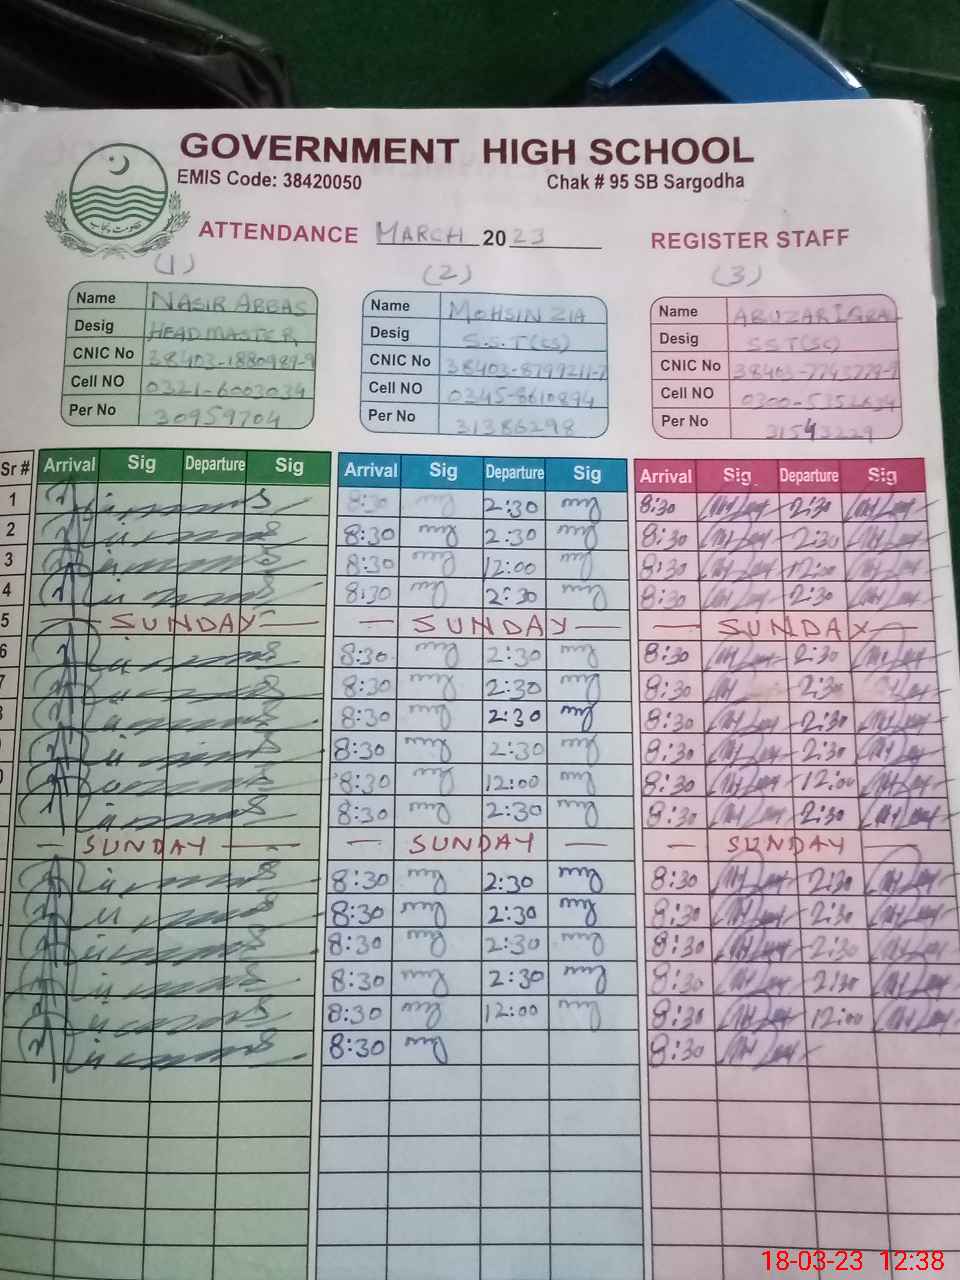 GOVERNMENT HIGH SCHOOL
EMIS Code: 38420050 Chak # 95 SB Sargodha
حکومت پنجاب
ATTENDANCE MARCH 2023 REGISTER STAFF
(1) (2) (3)
Name NASIR ABBAS
Desig HEADMASTER
CNIC No 38403-1880989-9
Cell NO 0321-6003034
Per No 30959704
Name MOHSIN ZIA
Desig S.S.T(SS)
CNIC No 38403-8799211-7
Cell NO 0345-8610894
Per No 31386298
Name ABUZAR IQBAL
Desig SST(SC)
CNIC No
Cell NO
Per No 31543229
Sr # Arrival Sig Departure Sig Arrival Sig Departure Sig Arrival Sig Departure Sig
1 8:30 2:30 8:30 2:30
2 8:30 2:30 8:30 2:30
3 8:30 12:00 8:30 12:00
4 8:30 2:30 8:30 2:30
5 SUNDAY SUNDAY SUNDAY
6 8:30 2:30 8:30 2:30
7 8:30 2:30 8:30 2:30
8:30 2:30 8:30 2:30
8:30 2:30 8:30 2:30
8:30 12:00 8:30 12:00
8:30 2:30 8:30 2:30
SUNDAY SUNDAY SUNDAY
8:30 2:30 8:30 2:30
8:30 2:30 8:30 2:30
8:30 2:30 8:30 2:30
8:30 2:30 8:30 2:30
8:30 12:00 8:30 12:00
8:30 8:30
18-03-23 12:38